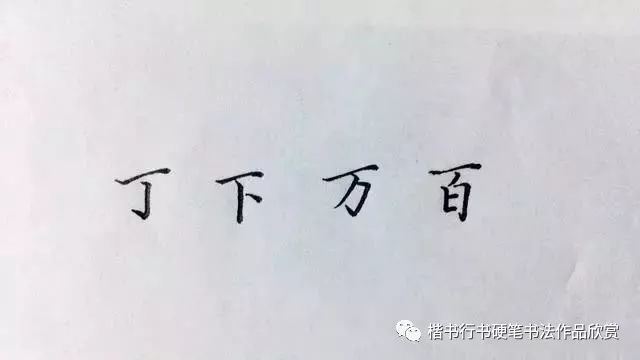 丁下万百
楷书行书硬笔书法作品欣赏